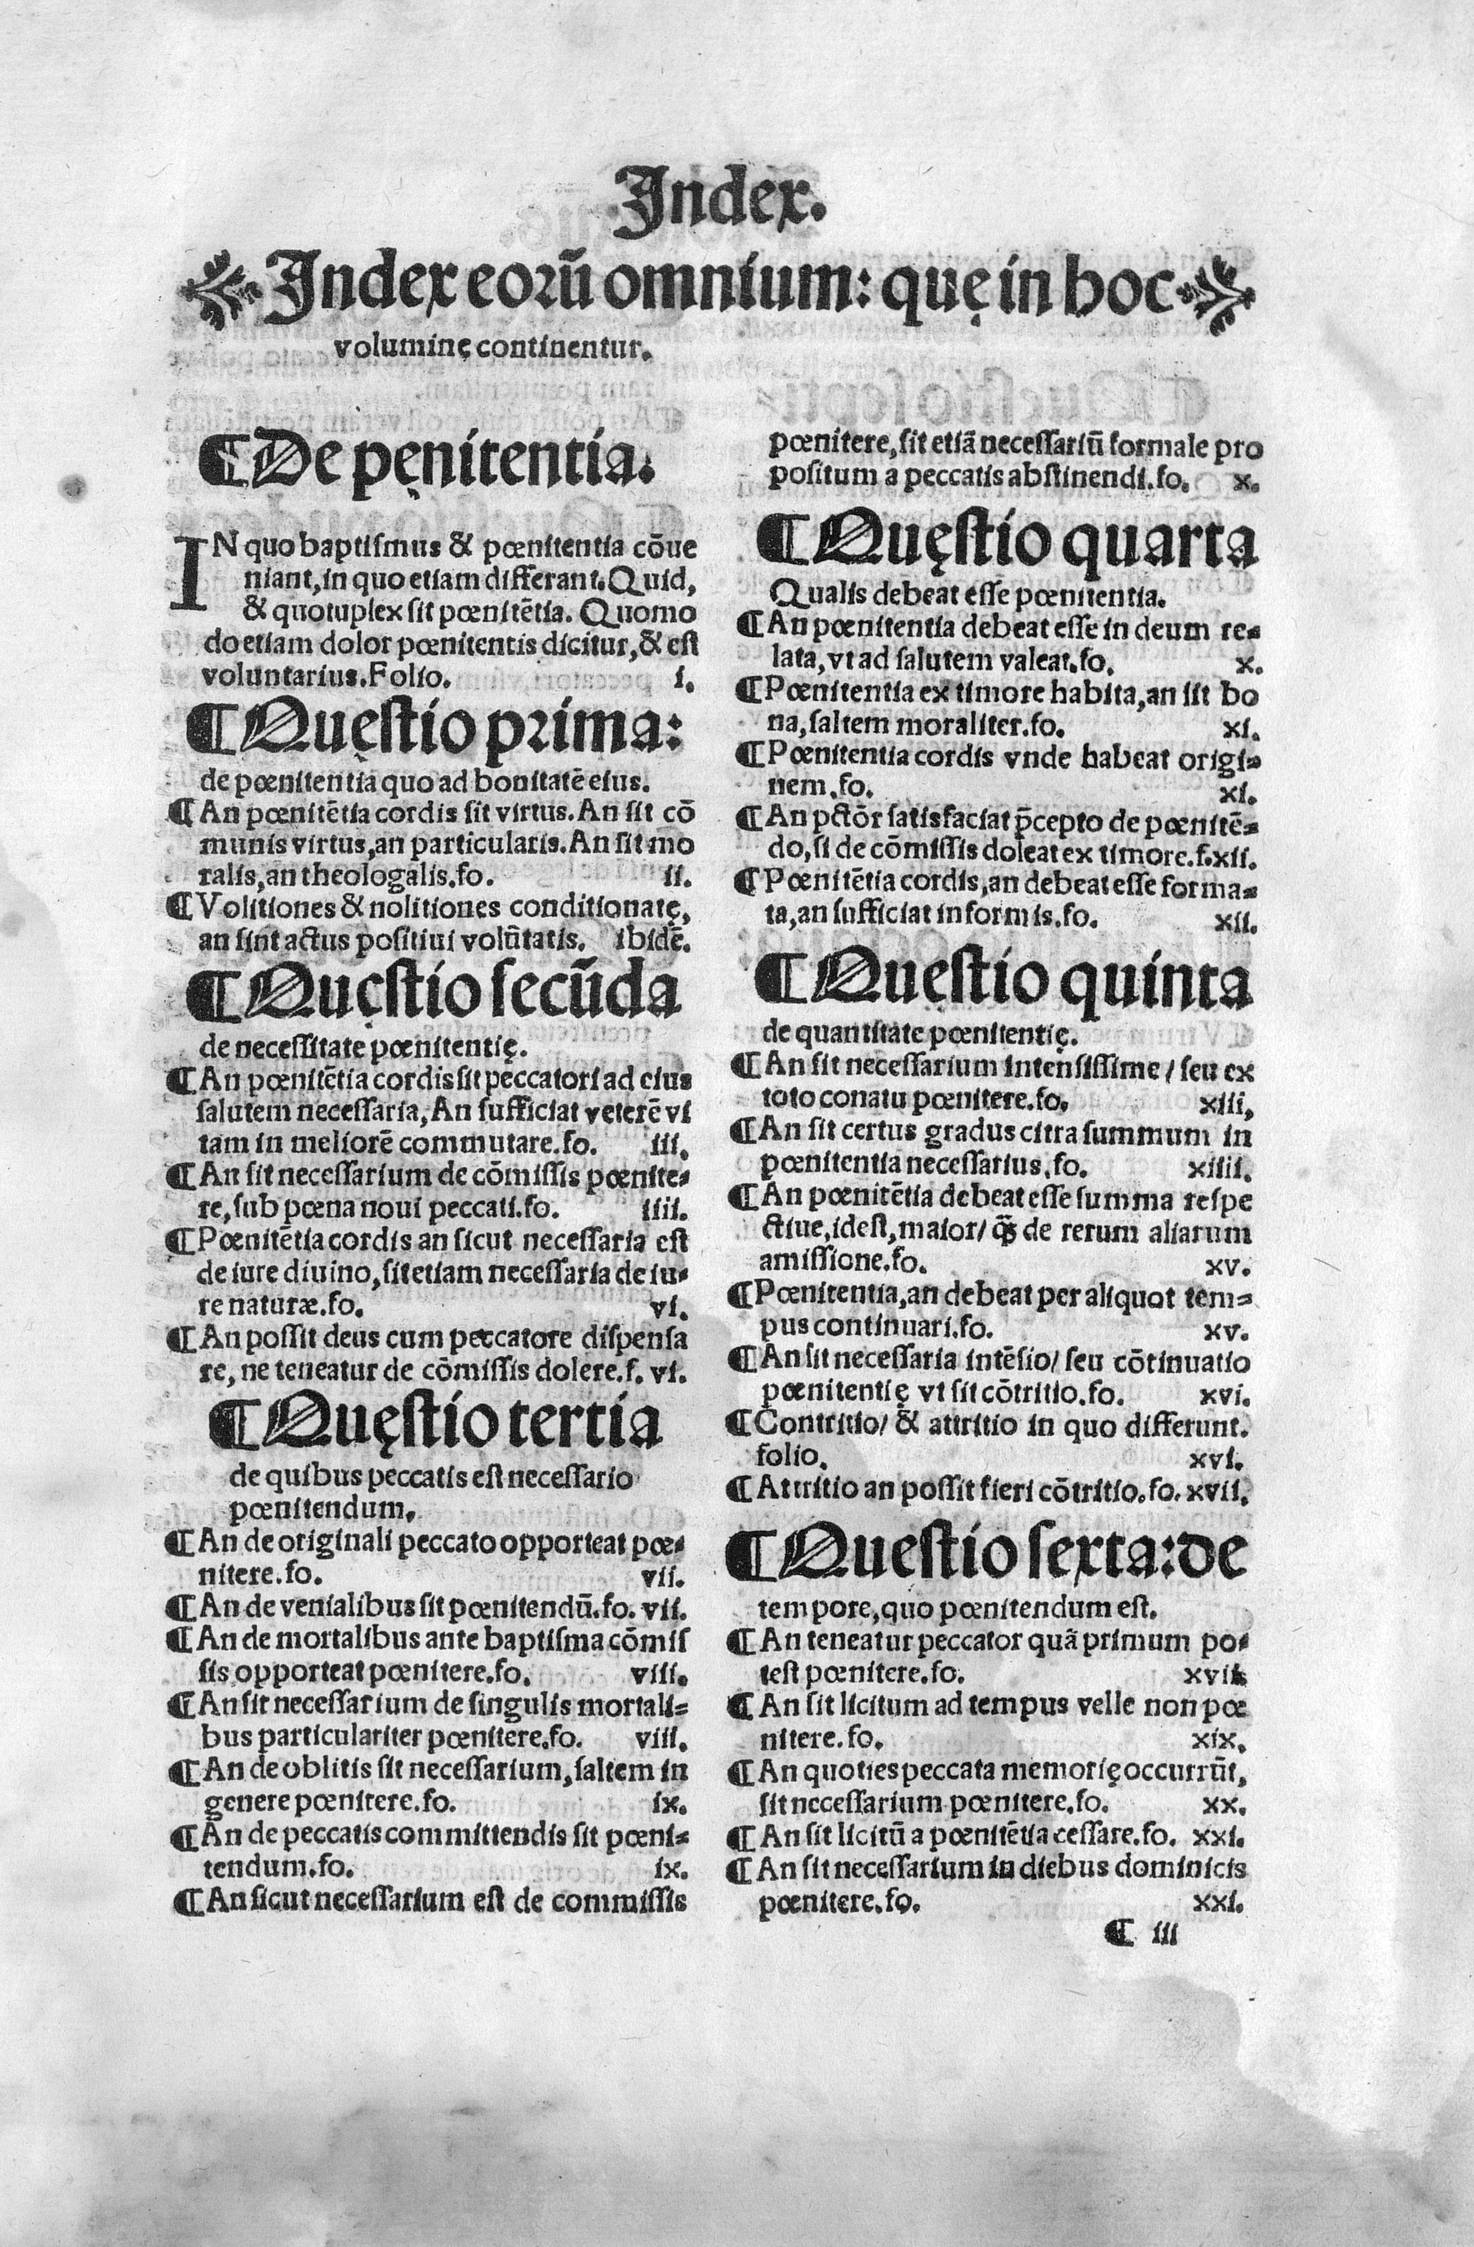 Index.
Index eorũ omnium: quę in hoc
voluminę continentur.
¶ De pęnitentia.
IN quo baptismus & pœnitentia cõue
niant, in quo etiam differant. Quid,
& quotuplex sit pœnitẽtia. Quomo
do etiam dolor pœnitentis dicitur, & est
voluntarius. Folio. i.
¶ Quęstio prima:
de pœnitentia quo ad bonitatẽ eius.
¶ An pœnitẽtia cordis sit virtus. An sit cõ
munis virtus, an particularis. An sit mo
ralis, an theologalis. fo. ii.
¶ Volitiones & nolitiones conditionatę,
an sint actus positiui volũtatis. ibidẽ.
¶ Quęstio secũda
de necessitate pœnitentię.
¶ An pœnitẽtia cordis sit peccatori ad eius
salutem necessaria, An sufficiat veterẽ vi
tam in meliorẽ commutare. fo. iii.
¶ An sit necessarium de cõmissis pœnite-
re, sub pœna noui peccati. fo. iiii.
¶ Pœnitẽtia cordis an sicut necessaria est
de iure diuino, sit etiam necessaria de iu-
re naturæ. fo. vi.
¶ An possit deus cum peccatore dispensa
re, ne teneatur de cõmissis dolere. f. vi.
¶ Quęstio tertia
de quibus peccatis est necessario
pœnitendum.
¶ An de originali peccato opporteat pœ-
nitere. fo. vii.
¶ An de venialibus sit pœnitendũ. fo. vii.
¶ An de mortalibus ante baptisma cõmis
sis opporteat pœnitere. fo. viii.
¶ An sit necessarium de singulis mortali-
bus particulariter pœnitere. fo. viii.
¶ An de oblitis sit necessarium, saltem in
genere pœnitere. fo. ix.
¶ An de peccatis committendis sit pœni-
tendum. fo. ix.
¶ An sicut necessarium est de commissis
pœnitere, sit etiã necessariũ formale pro
positum a peccatis abstinendi. fo. x.
¶ Quęstio quarta
Qualis debeat esse pœnitentia.
¶ An pœnitentia debeat esse in deum re-
lata, vt ad salutem valeat. fo. x.
¶ Pœnitentia ex timore habita, an sit bo
na, saltem moraliter. fo. xi.
¶ Pœnitentia cordis vnde habeat origi-
nem. fo. xi.
¶ An pctõr satisfaciat p̃cepto de pœnitẽ-
do, si de cõmissis doleat ex timore. f. xii.
¶ Pœnitẽtia cordis, an debeat esse forma-
ta, an sufficiat informis. fo. xii.
¶ Quęstio quinta
de quantitate pœnitentię.
¶ An sit necessarium intensissime / seu ex
toto conatu pœnitere. fo. xiii,
¶ An sit certus gradus citra summum in
pœnitentia necessarius. fo. xiiii.
¶ An pœnitẽtia debeat esse summa respe
ctiue, idest, maior / q̃ de rerum aliarum
amissione. fo. xv.
¶ Pœnitentia, an debeat per aliquot tem-
pus continuari. fo. xv.
¶ An sit necessaria intẽsio / seu cõtinuatio
pœnitentię vt sit cõtritio. fo. xvi.
¶ Contritio / & attritio in quo differunt.
folio. xvi.
¶ Attritio an possit fieri cõtritio. fo. xvii.
¶ Questio sexta: de
tempore, quo pœnitendum est.
¶ An teneatur peccator quã primum po-
test pœnitere. fo. xvii
¶ An sit licitum ad tempus velle non pœ
nitere. fo. xix.
¶ An quoties peccata memorię occurrũt,
sit necessarium pœnitere. fo. xx.
¶ An sit licitũ a pœnitẽtia cessare. fo. xxi.
¶ An sit necessarium in diebus dominicis
pœnitere. fo. xxi.
¶ iii